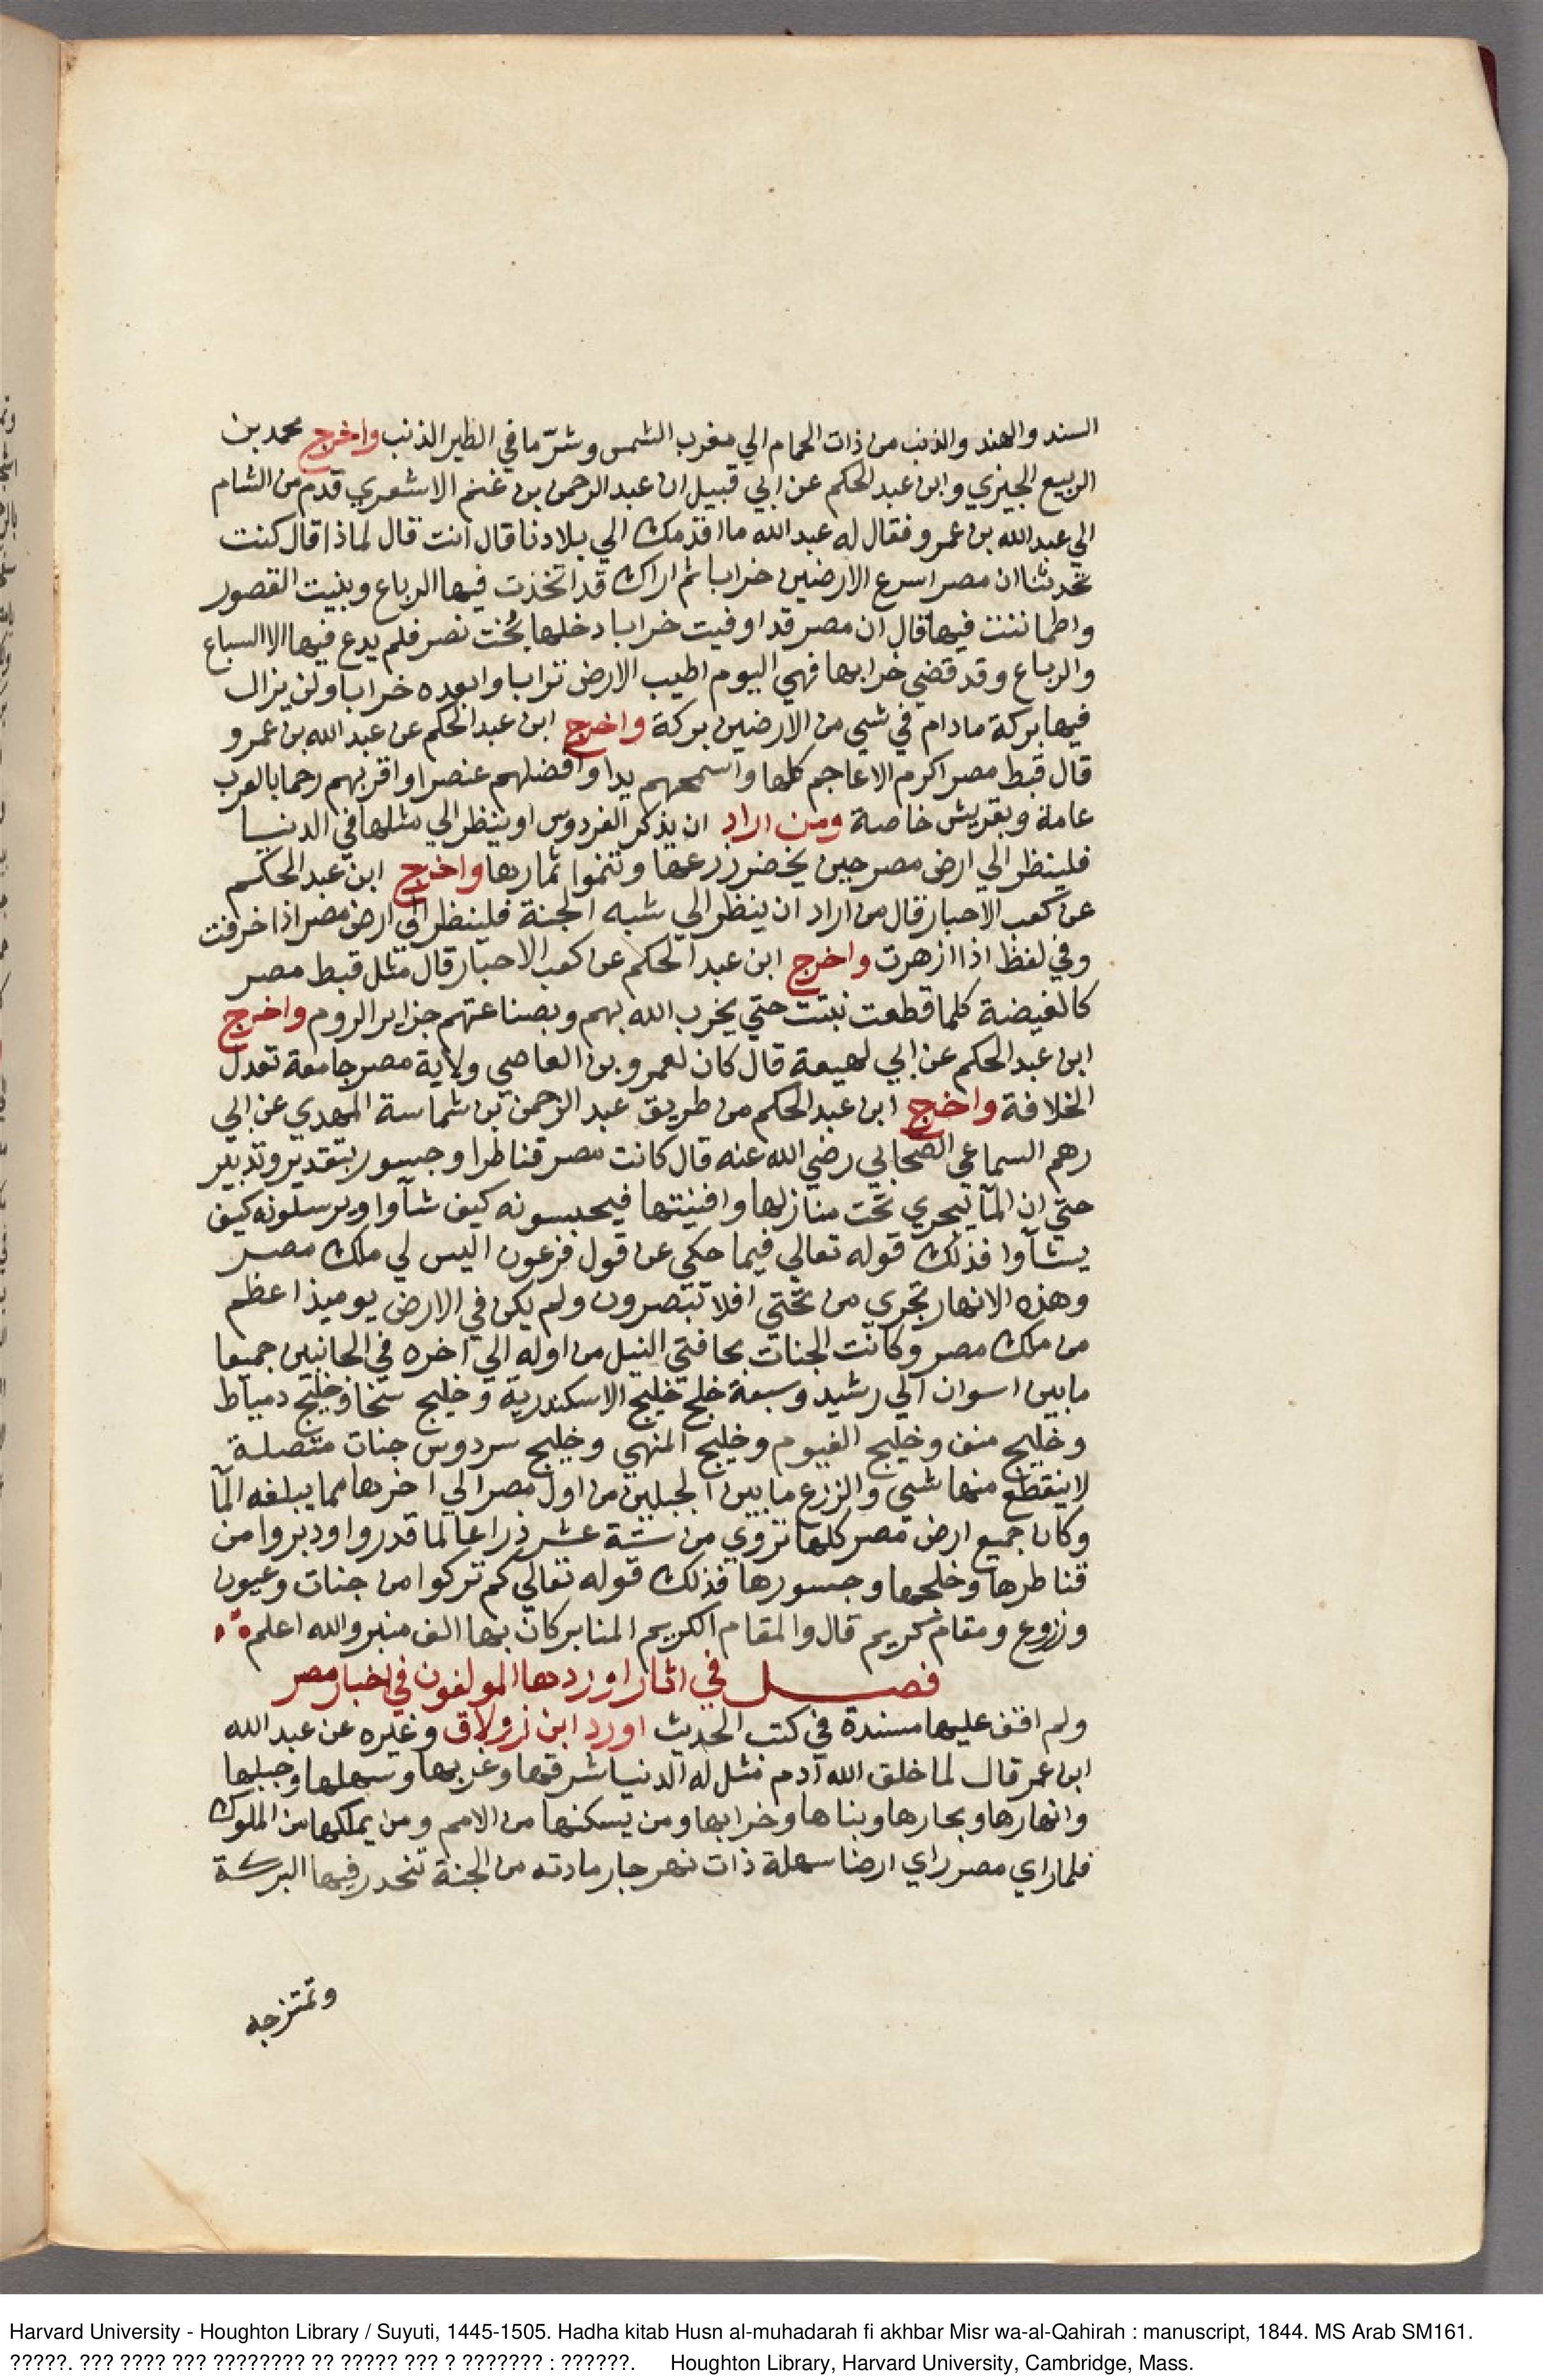 السند والهند والذنب من ذات الحمام الي مغرب الشمس وشرّ ما في الطير الذنب واخرج محمد بن
الربيع الجيزي وابن عبد الحكم عن ابي قبيل ان عبد الرحمن بن غنم الاشعري قدم من الشام
الي عبد الله بن عمرو فقال له عبد الله ما اقدمك الي بلادنا قال انت قال لماذا قال كنت
تحدثنا ان مصر اسرع الارضين خرابا ثم اراك قد اتخذت فيها الرباع وبنيت القصور
واطماننت فيها قال ان مصر قد اوفيت خرابا دخلها بُخت نصر فلم يدع فيها الا السباع
والرباع وقد قضي خرابها فهي اليوم اطيب الارض ترابا وابعده خرابا ولن يزال
فيها بركة مادام في شي من الارضين بركة واخرج ابن عبد الحكم عن عبد الله بن عمرو
قال قبط مصر اكرم الاعاجم كلها واسمحهم يدا وافضلهم عنصرا واقربهم رحما بالعرب
عامة وبقريش خاصة ومن اراد ان يذكر الفردوس او ينظر الي مثلها في الدنيا
فلينظر الي ارض مصر حين يخضر زرعها وتنموا ثمارها واخرج ابن عبد الحكم
عن كعب الاحبار قال من اراد ان ينظر الي شبه الجنة فلينظر الي ارض مصر اذا خرفت
وفي لفظ اذا ازهرت واخرج ابن عبد الحكم عن كعب الاحبار قال مثل قبط مصر
كالغيضة كلما قطعت نبتت حتي يخرب الله بهم وبصناعتهم جزاير الروم واخرج
ابن عبد الحكم عن ابي لهيعة قال كان لعمرو بن العاصي ولاية مصر جامعة تعدل
الخلافة واخرج ابن عبد الحكم من طريق عبد الرحمن بن شماسة المهدي عن ابي
رهم السماعي الصحابي رضي الله عنه قال كانت مصر قناطرا وجسور بتقدير وتدبير
حتي ان المآ ليجري تحت منازلها وافنيتها فيحبسونه كيف شآوا ويرسلونه كيف
يشآوا فذلك قوله تعالي فيما حكي عن قول فرعون اليس لي ملك مصر
وهذه الانهار تجري من تحتي افلا تبصرون ولم يكن في الارض يوميذ اعظم
من ملك مصر وكانت الجنات بحافتي النيل من اوله الي اخره في الجانبين جميعا
ما بين اسوان الي رشيد وسبعة خلج خليج الاسكندرية وخليج سخا وخليج دمياط
وخليج منف وخليج الفيوم وخليج المنهي وخليج سردوس جنات متصلة
لا ينقطع منها شي والزرع ما بين الجبلين من اول مصر الي اخرها مما يبلغه المآ
وكان جميع ارض مصر كلها تروي من ستة عشر ذراعا لما قدروا ودبروا من
قناطرها وخلجها وجسورها فذلك قوله تعالي كم تركوا من جنات وعيون
وزروع ومقام كريم قال والمقام الكريم المنابر كان بها الف منبر والله اعلم
فصل في اثار اوردها المولفون في اخبار مصر
ولم اقف عليها مسندة في كتب الحديث اورد ابن زولاق وغيره عن عبد الله
ابن عمر قال لما خلق الله آدم مثل له الدنيا شرقها وغربها وسهلها وجبلها
وانهارها وبحارها وبناها وخرابها ومن يسكنها من الامم ومن يملكها من الملوك
فلما راي مصر راي ارضا سهلة ذات نهر جار مادته من الجنة تنحدر فيها البركة
وتمتزجه
Harvard University - Houghton Library / Suyuti, 1445-1505. Hadha kitab Husn al-muhadarah fi akhbar Misr wa-al-Qahirah : manuscript, 1844. MS Arab SM161.
?????. ??? ???? ??? ???????? ?? ????? ??? ? ??????? : ??????. Houghton Library, Harvard University, Cambridge, Mass.